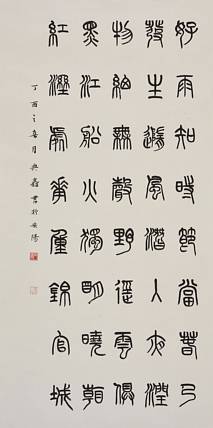 好雨知時節當春乃
發生隨風潛入夜潤
物細無聲野徑雲俱
黑江船火獨明曉看
紅濕處花重錦官城
丁酉之月典鑫書於安陽